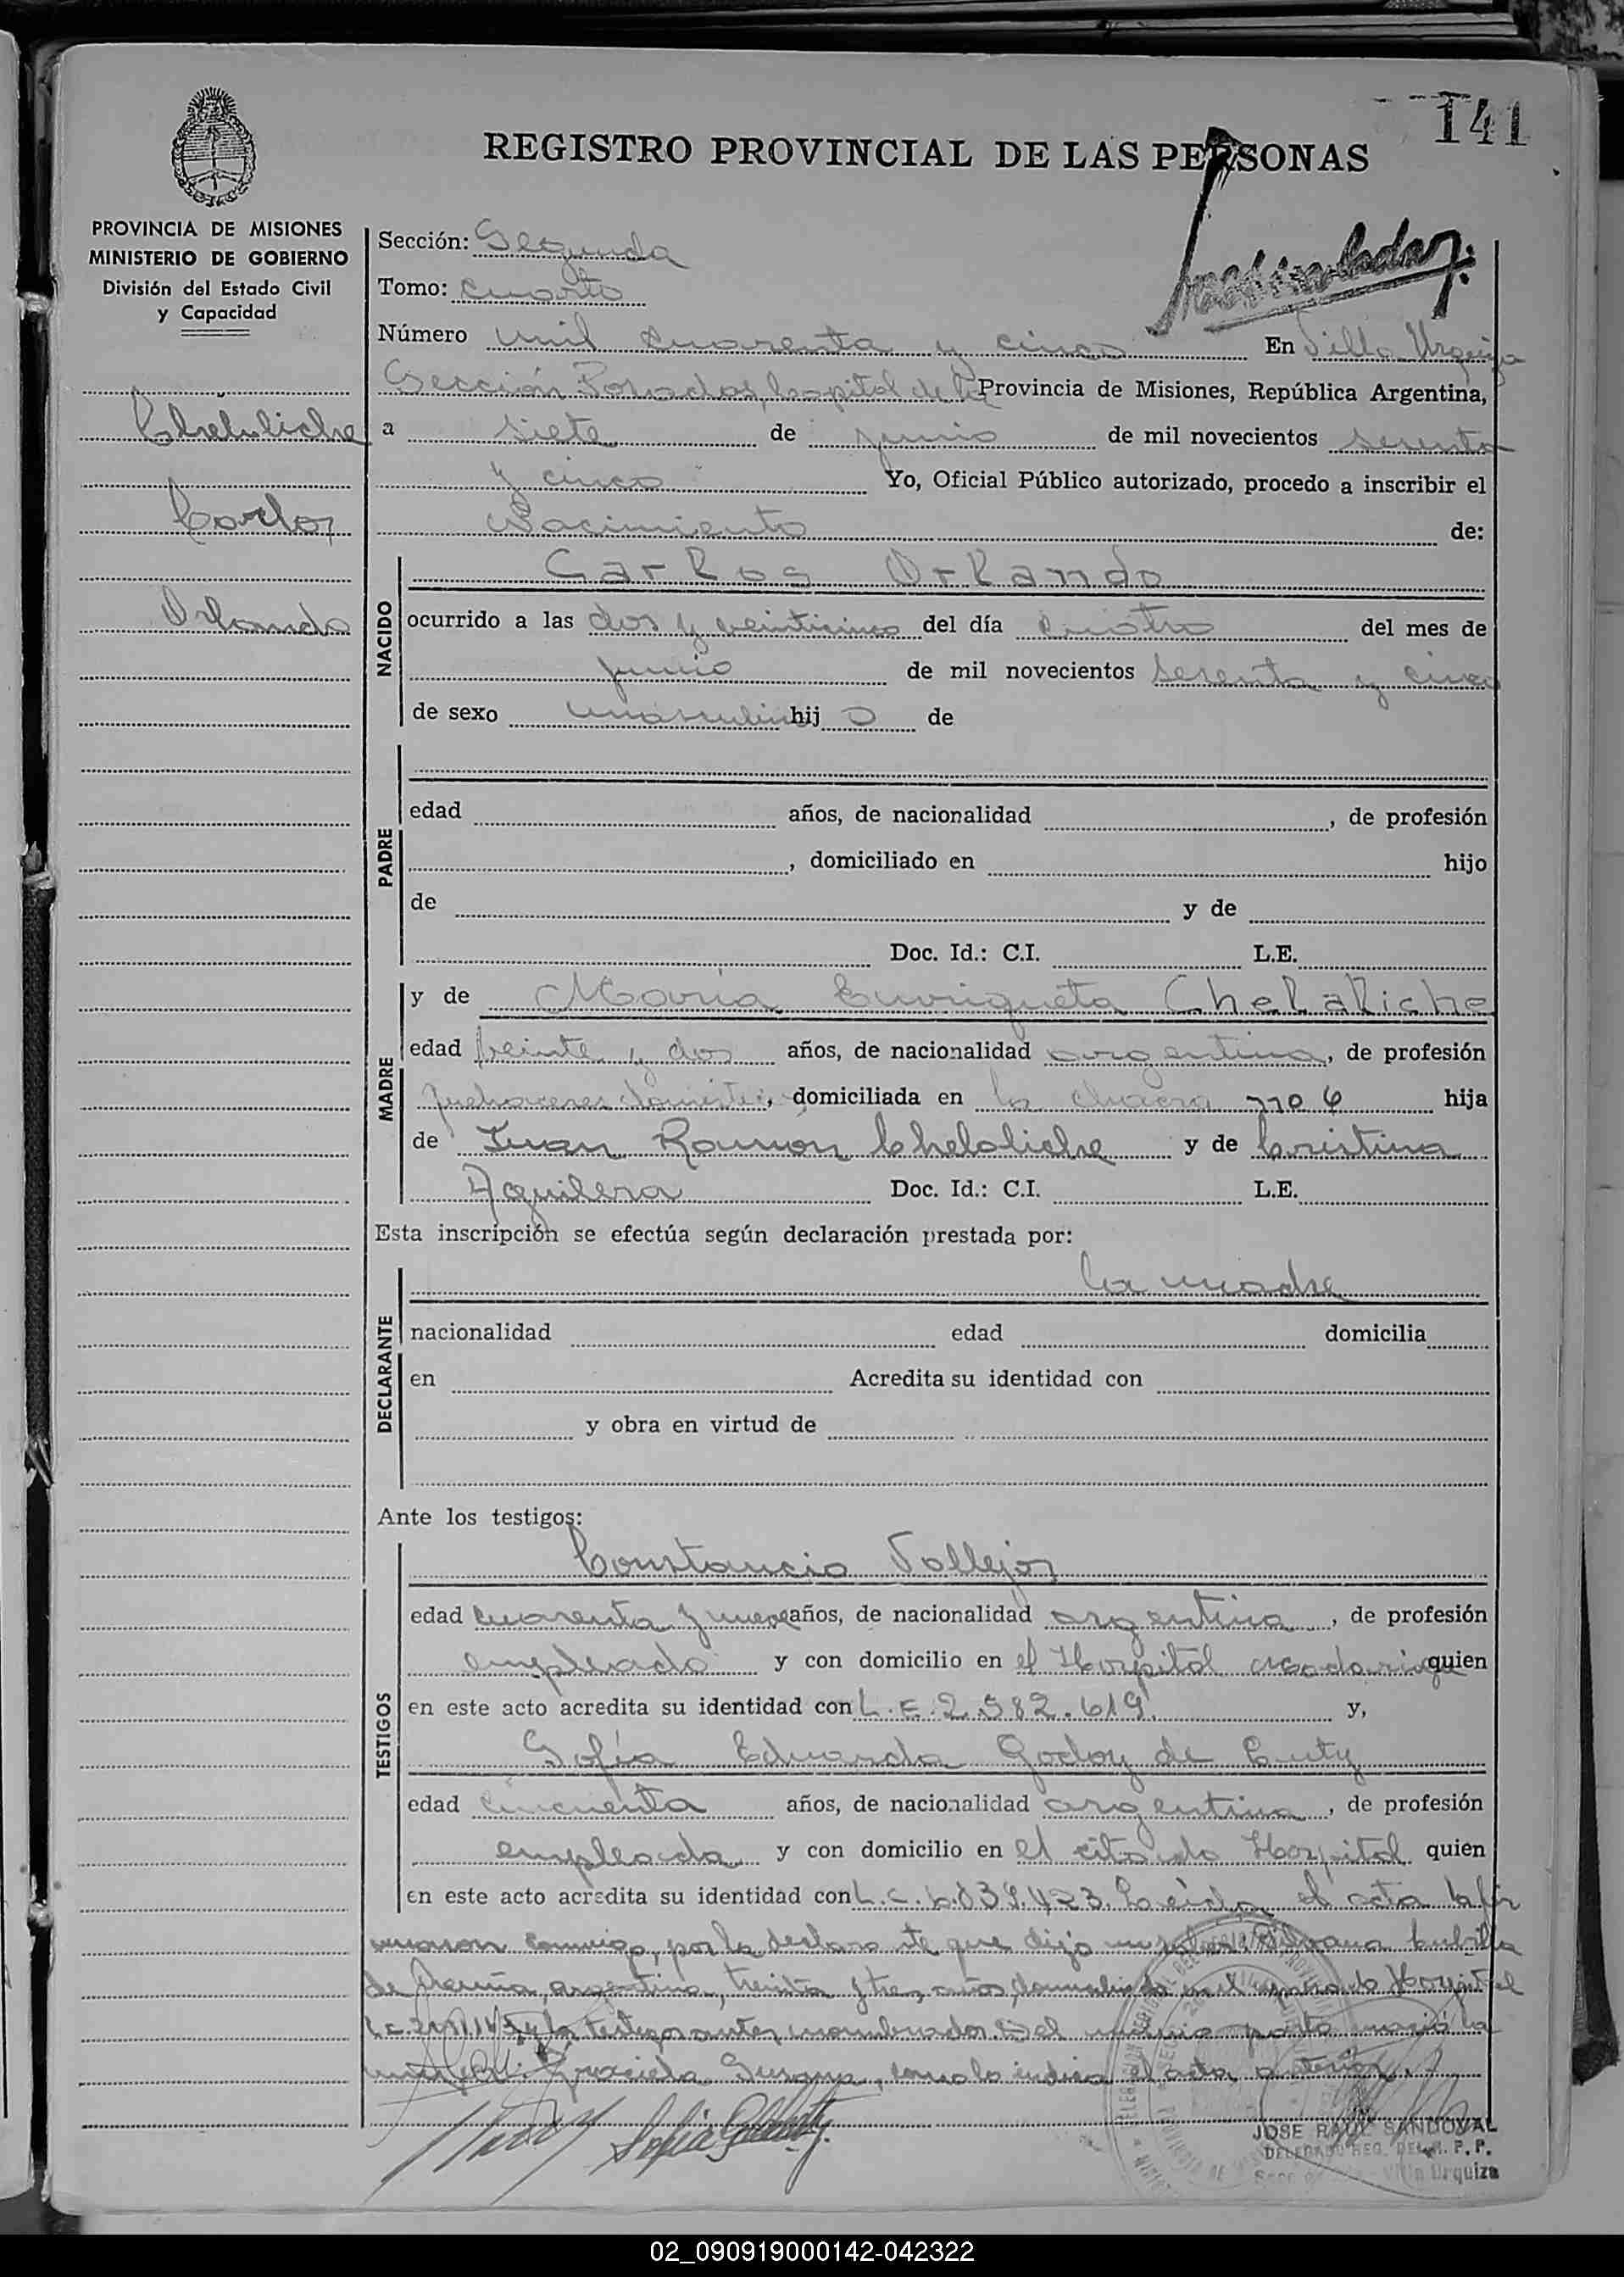 141
REGISTRO PROVINCIAL DE LAS PERSONAS
PROVINCIA DE MISIONES
MINISTERIO DE GOBIERNO
División del Estado Civil
y Capacidad
Chelaliche
Carlos
Orlando
Sección: Segunda
Tomo: cuarto
Número mil cuarenta y cinco En Villa Urquiza
Sección Posadas, Capital de la Provincia de Misiones, República Argentina,
a siete de junio de mil novecientos sesenta
y cinco Yo, Oficial Público autorizado, procedo a inscribir el
Nacimiento de:
NACIDO
Carlos Orlando
ocurrido a las dos y veinticinco del día cuatro del mes de
junio de mil novecientos sesenta y cinco
de sexo masculino hijo de
PADRE
edad años, de nacionalidad , de profesión
, domiciliado en hijo
de y de
Doc. Id.: C.I. L.E.
MADRE
y de María Enriqueta Chelaliche
edad treinta y dos años, de nacionalidad argentina, de profesión
quehaceres domésticos, domiciliada en la chacra 104 hija
de Juan Ramon Chelaliche y de Cristina
Aguilera Doc. Id.: C.I. L.E.
Esta inscripción se efectúa según declaración prestada por:
DECLARANTE
la madre
nacionalidad edad domicilia
en Acredita su identidad con
y obra en virtud de
Ante los testigos:
TESTIGOS
Constancio Vallejos
edad cuarenta y nueve años, de nacionalidad argentina, de profesión
empleado y con domicilio en el Hospital Madariaga quien
en este acto acredita su identidad con L.E. 2.582.619. y,
Sofía Eduarda Godoy de Cuty
edad cincuenta años, de nacionalidad argentina, de profesión
empleada y con domicilio en el citado Hospital quien
en este acto acredita su identidad con L.C. Leída el acta la fir
maron conmigo, por la declarante que dijo no
de argentina, treinta y tres años, domiciliada en el Hospital
L.C. y los testigos antes nombrados. Del mismo parto nació la
Graciela Susana, como lo indica el acta anterior.
JOSE RAUL SANDOVAL
DELEGADO REG. DEL R. P. P.
Villa Urquiza
02_090919000142-042322